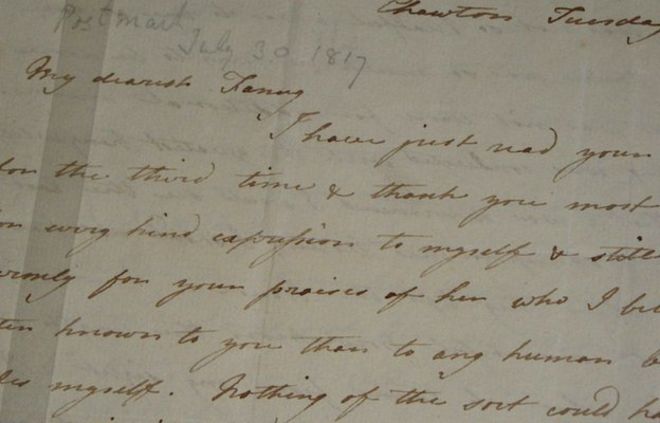 Chawton Tuesday
Postmark
July 30 1817
My dearest Fanny
I have just read your
for the third time & thank you most
every kind expression to myself & still
for your praises of her who I
known to you than to any human
myself. Nothing of the sort could